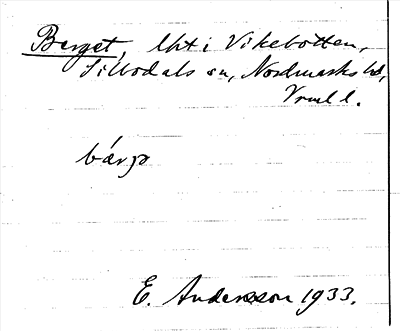 Berget, lht i Vikebotten,
Sillbodals sn, Nordmarks hd,
Vrml l.
bárjə
E. Andersson 1933.